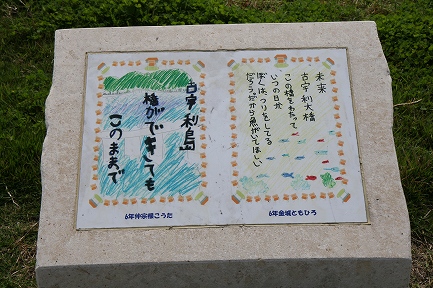 古宇利島
橋ができても
このままで
6年仲宗根こうた
未来
古宇利大橋
この橋をわたって
いつの日か
ぼくは、つりをしてる
だから魚がいてほしい
6年金城ともひろ